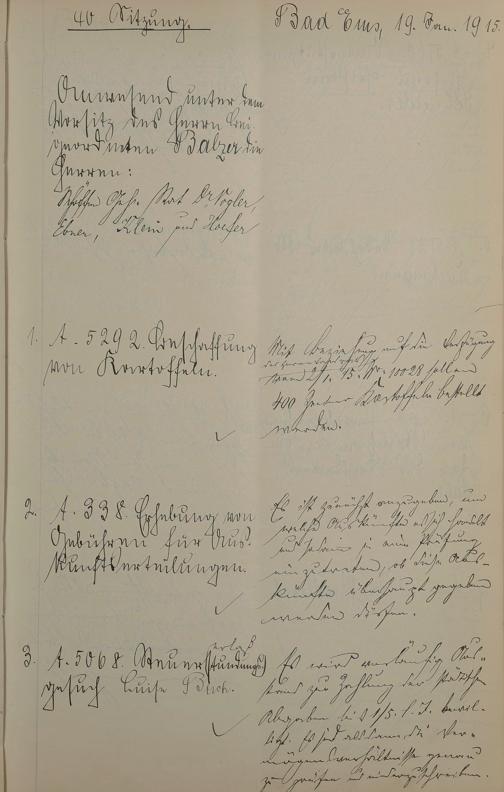 40 Sitzung.
Bad Ems, 19. Jan. 1915.
Anwesend unter dem
Vorsitz des Herrn Bei-
geordneten Balzer die
Herren:
Geh. Rat Dr. Vogler,
Ebner, Klein und Hoefer
1. A. 5292. Beschaffung
von Kartoffeln.
Mit Beziehung auf die Verfügung
15. Nr. 10028 sollen
400 Zentner Kartoffeln bestellt
werden.
2. A. 338. Erhebung von
Gebühren für Aus-
kunftserteilungen.
Es ist zunächst anzugeben, um
welche Auskünfte es sich handelt
und sodann in eine Prüfung
einzutreten, ob diese Aus-
künfte überhaupt gegeben
werden dürfen.
3. A. 5068. Steuer(stundungs)
erlaß
gesuch Luise
Es wird vorläufig Aus-
stand zur Zahlung der städtischen
Abgaben bis 1/5. l. J. bewil-
ligt. Es sind alsdann die Ver-
mögensverhältnisse genau
zu prüfen und